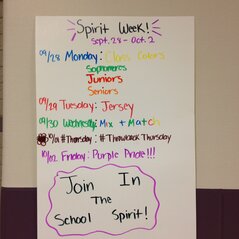 Spirit Week!
Sept. 28 - Oct. 2
09/28 Monday: Class Colors
Sophomores
Juniors
Seniors
09/29 Tuesday: Jersey
09/30 Wednesday: Mix + Match
10/01 #Thursday: #Throwback Thursday
10/02 Friday: Purple Pride!!!
Join In
The
School Spirit!